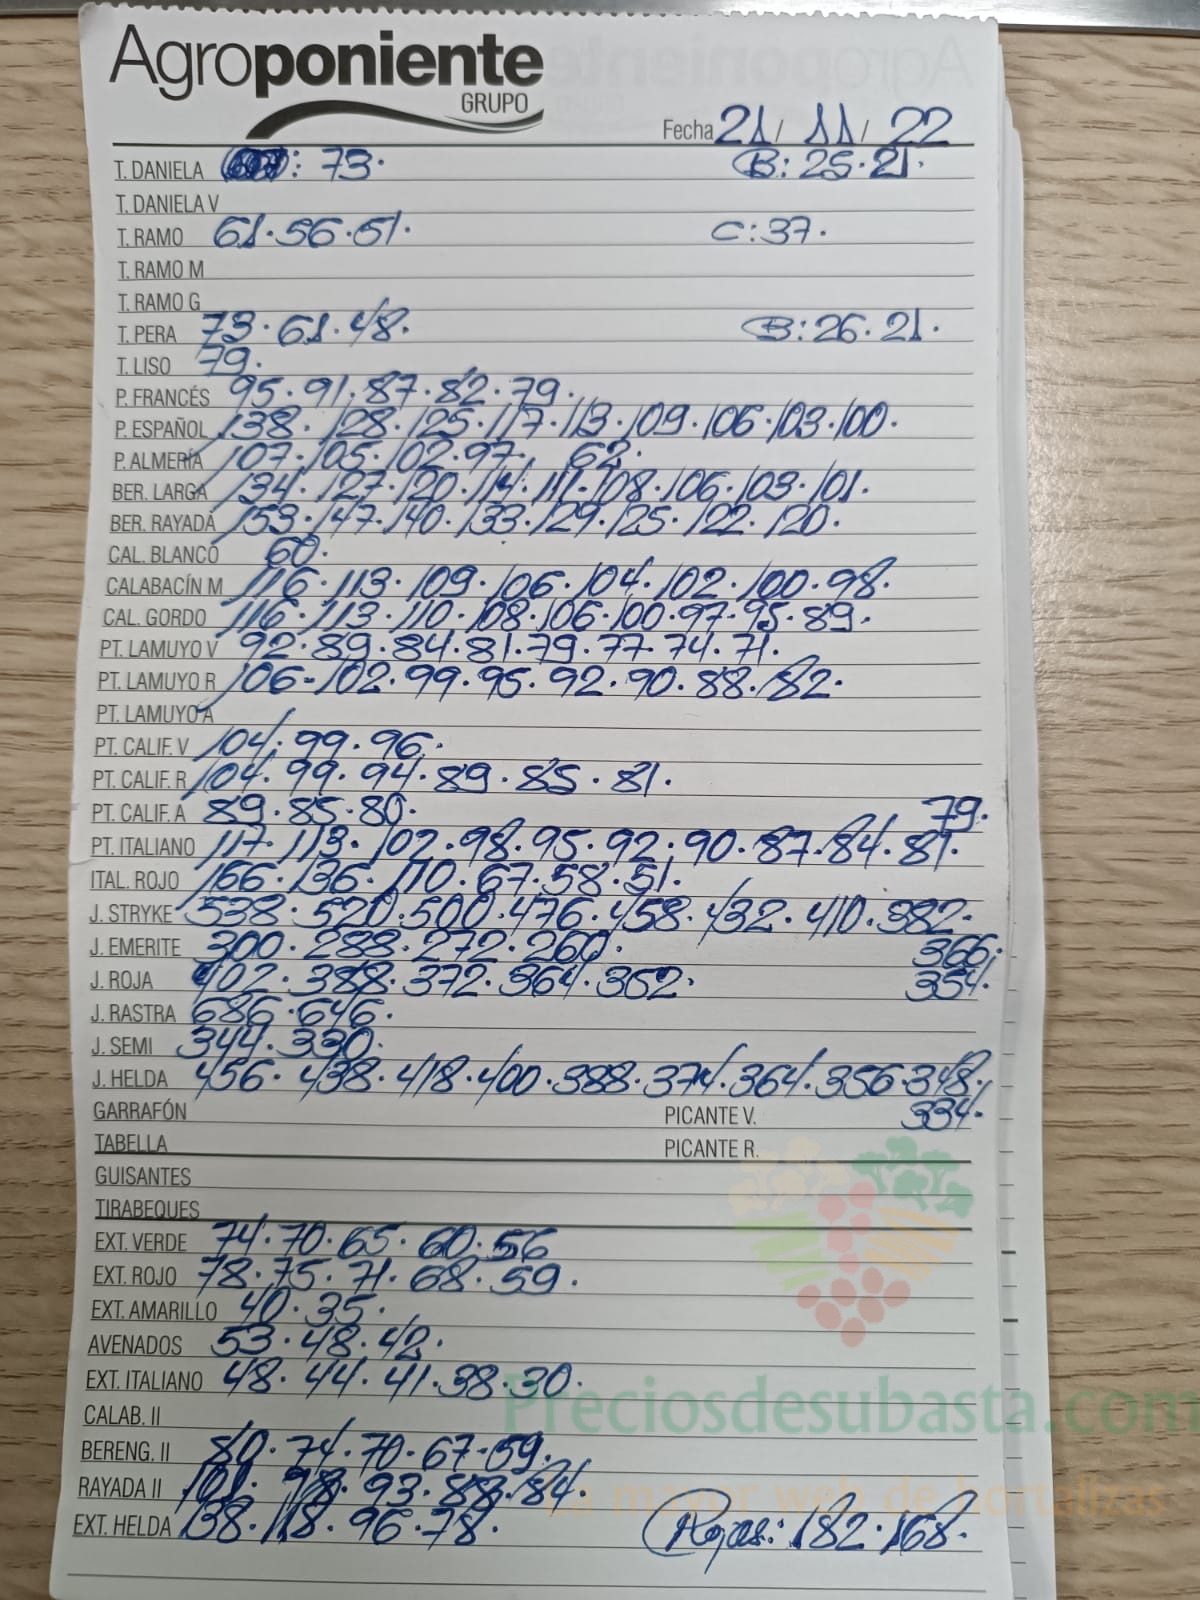 Agroponiente
GRUPO
Fecha 21 / 11 / 22
T. DANIELA : 73. B: 25.21.
T. DANIELA V
T. RAMO 61.56.51. C: 37.
T. RAMO M
T. RAMO G
T. PERA 73.61.48. B: 26.21.
T. LISO 79.
P. FRANCÉS 95.91.87.82.79.
P. ESPAÑOL 138.128.125.117.113.109.106.103.100.
P. ALMERÍA 107.105.102.97. 62.
BER. LARGA 134.127.120.114.111.108.106.103.101.
BER. RAYADA 153.147.140.133.129.125.122.120.
CAL. BLANCO 60.
CALABACÍN M 116.113.109.106.104.102.100.98.
CAL. GORDO 116.113.110.108.106.100.97.95.89.
PT. LAMUYO V 92.89.84.81.79.77.74.71.
PT. LAMUYO R 106-102.99.95.92.90.88.82.
PT. LAMUYO A
PT. CALIF. V 104.99.96.
PT. CALIF. R 104.99.94.89.85.81.
PT. CALIF. A 89.85.80. 79.
PT. ITALIANO 117.113.102.98.95.92.90.87.84.81.
ITAL. ROJO 166.136.110.67.58.51.
J. STRYKE 538.520.500.476.458.432.410.382.
J. EMERITE 300.288.272.260. 366.
J. ROJA 402.388.372.364.352. 354.
J. RASTRA 686.646.
J. SEMI 344.330.
J. HELDA 456.438.418.400.388.374.364.356.348.
GARRAFÓN PICANTE V. 334.
TABELLA PICANTE R.
GUISANTES
TIRABEQUES
EXT. VERDE 74.70.65.60.56
EXT. ROJO 78.75.71.68.59.
EXT. AMARILLO 40.35.
AVENADOS 53.48.42.
EXT. ITALIANO 48.44.41.38.30.
Preciosdesubasta.com
CALAB. II
BERENG. II 80.74.70.67.59.
RAYADA II 101.98.93.88.84.
La mayor web de hortalizas
EXT. HELDA 138.118.96.78. Rojas: 182.168.